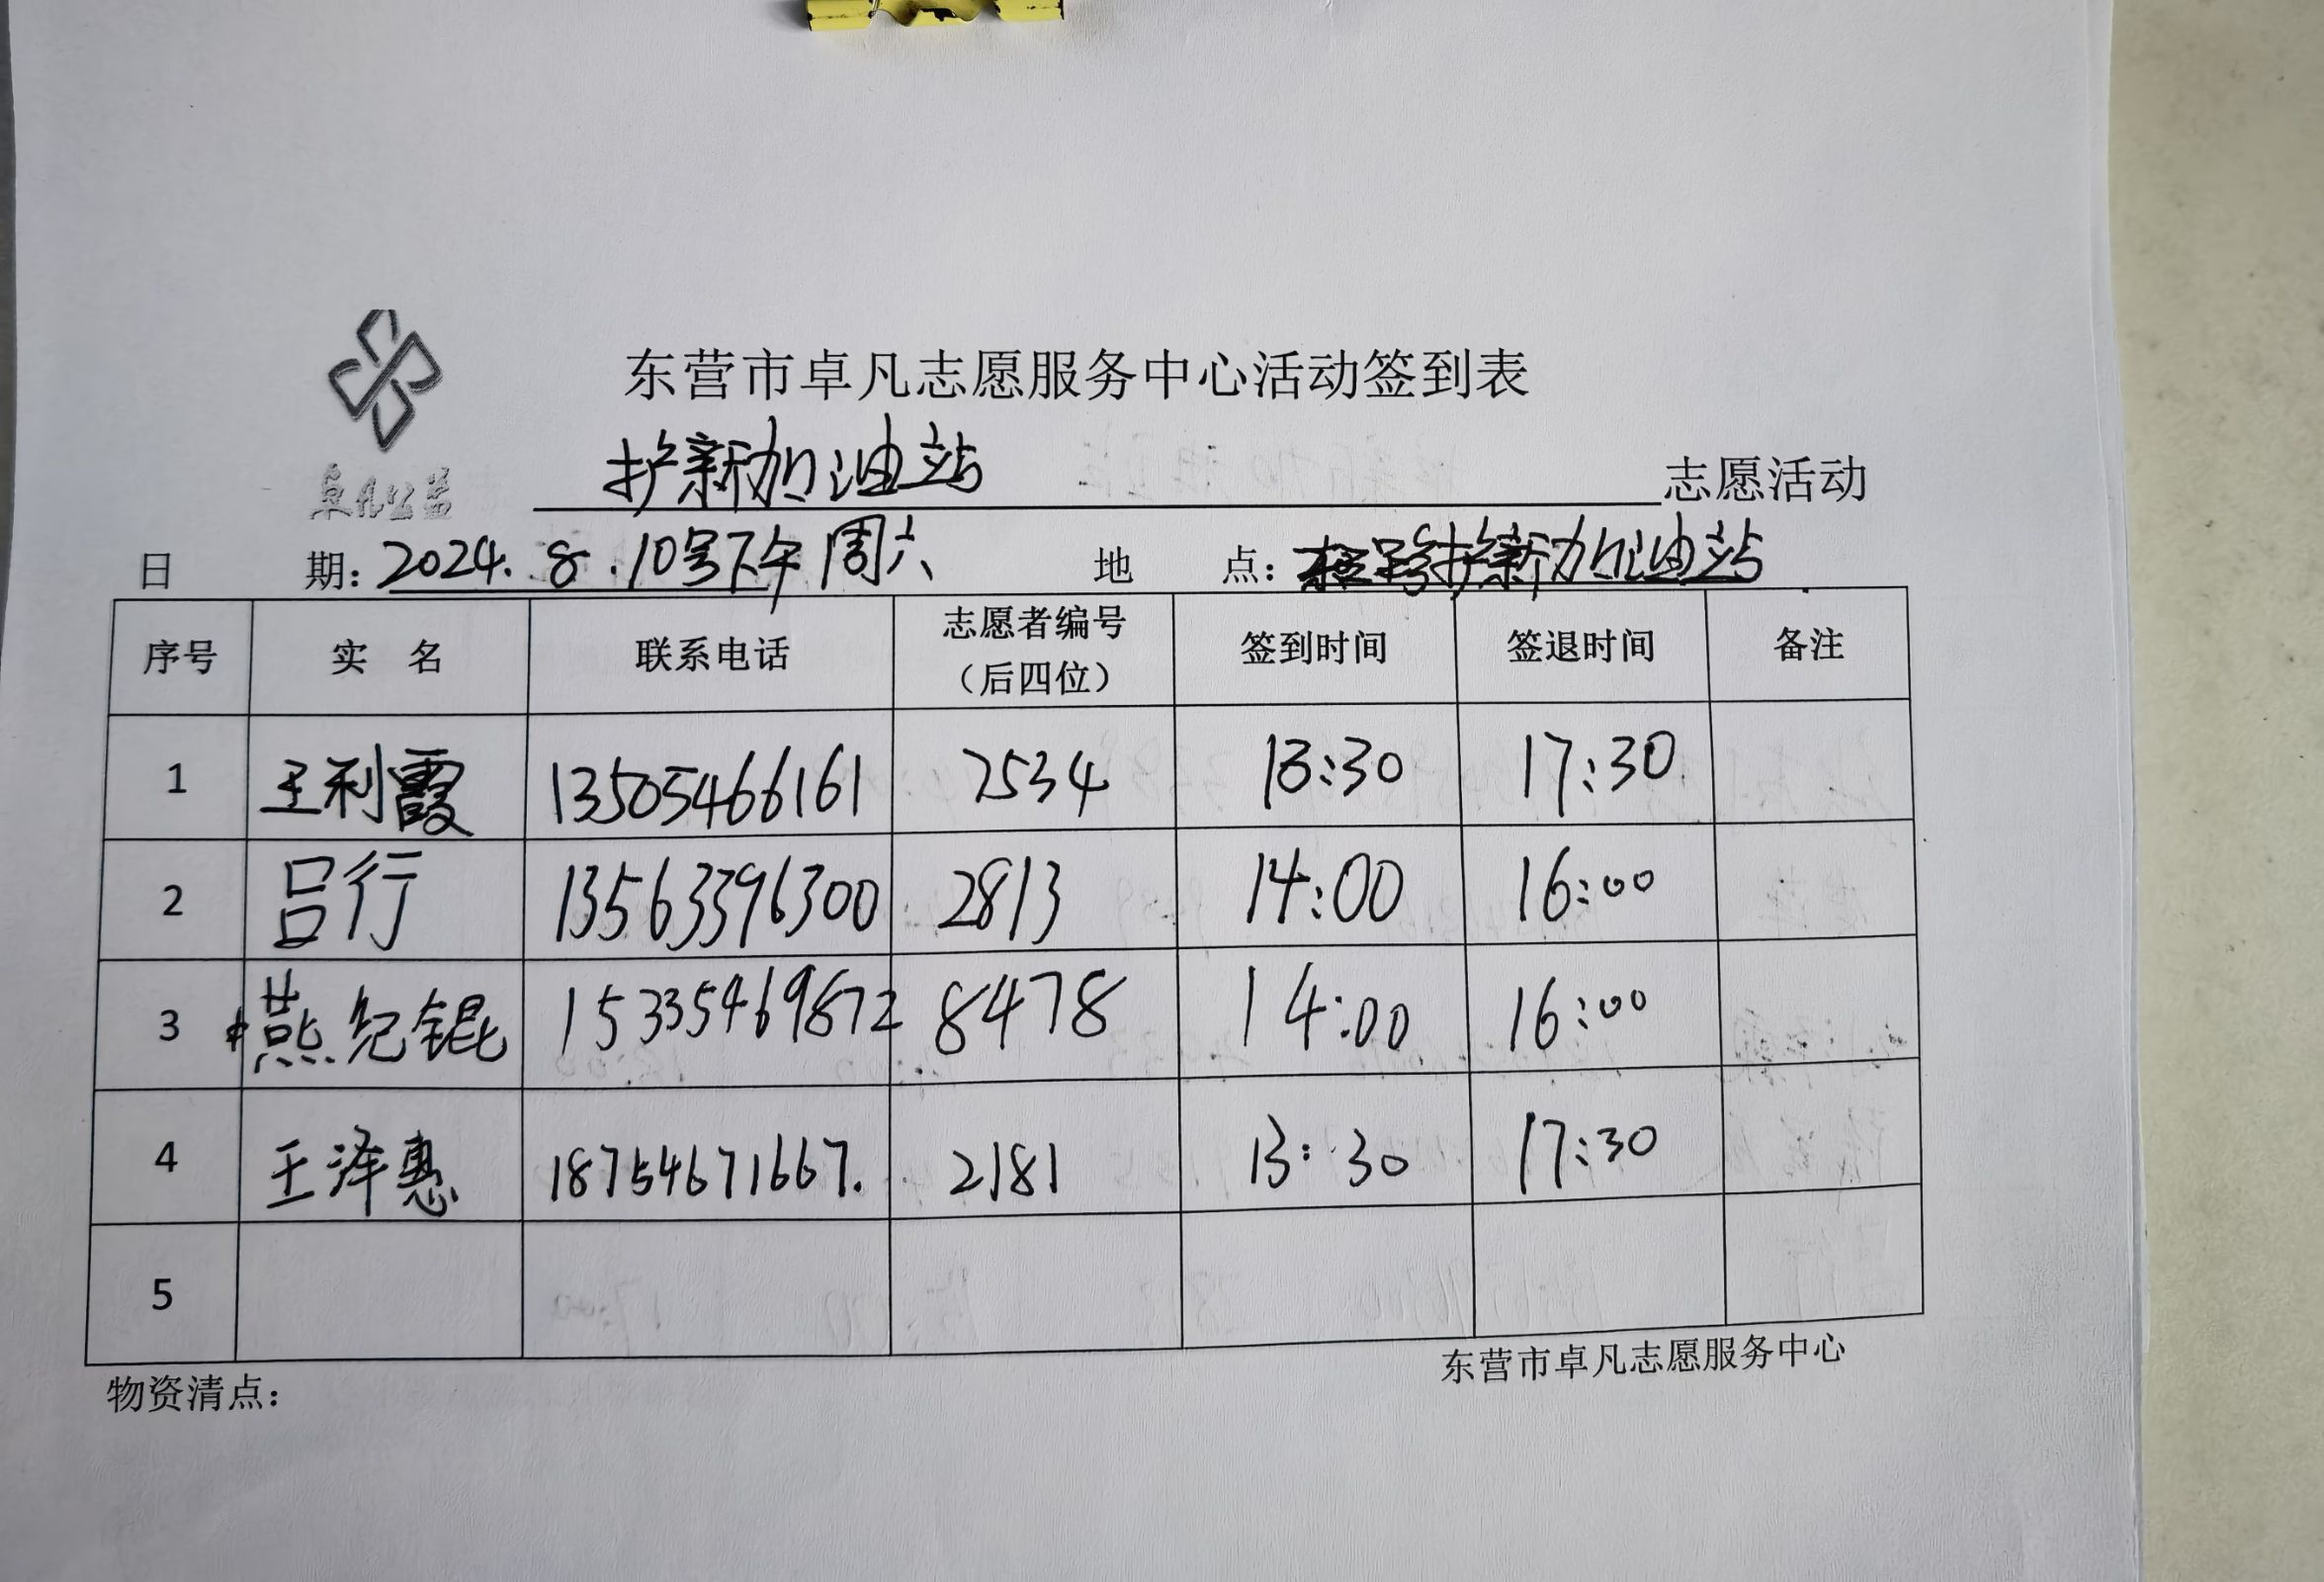 东营市卓凡志愿服务中心活动签到表
卓凡公益
护新加油站 志愿活动
日 期：2024.8.10号下午周六 地 点：护新加油站
序号 实 名 联系电话 志愿者编号（后四位） 签到时间 签退时间 备注
1 王利霞 13505466161 2534 13:30 17:30
2 吕行 13563396300 2813 14:00 16:00
3 燕纪锟 15335469872 8478 14:00 16:00
4 王泽惠 18754671667. 2181 13:30 17:30
5
东营市卓凡志愿服务中心
物资清点：